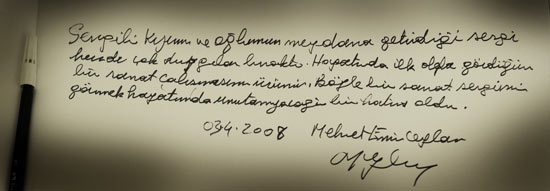 Sevgili kızımın ve oğlumun meydana getirdiği sergi
bende çok duygular bıraktı. Hayatımda ilk defa gördüğüm
bir sanat çalışmasını ürünü. Böyle bir sanat sergisini
görmek hayatımda unutamıyacağı bir hatıra oldu.
03.4.2008 Mehmet Emin Ceylan